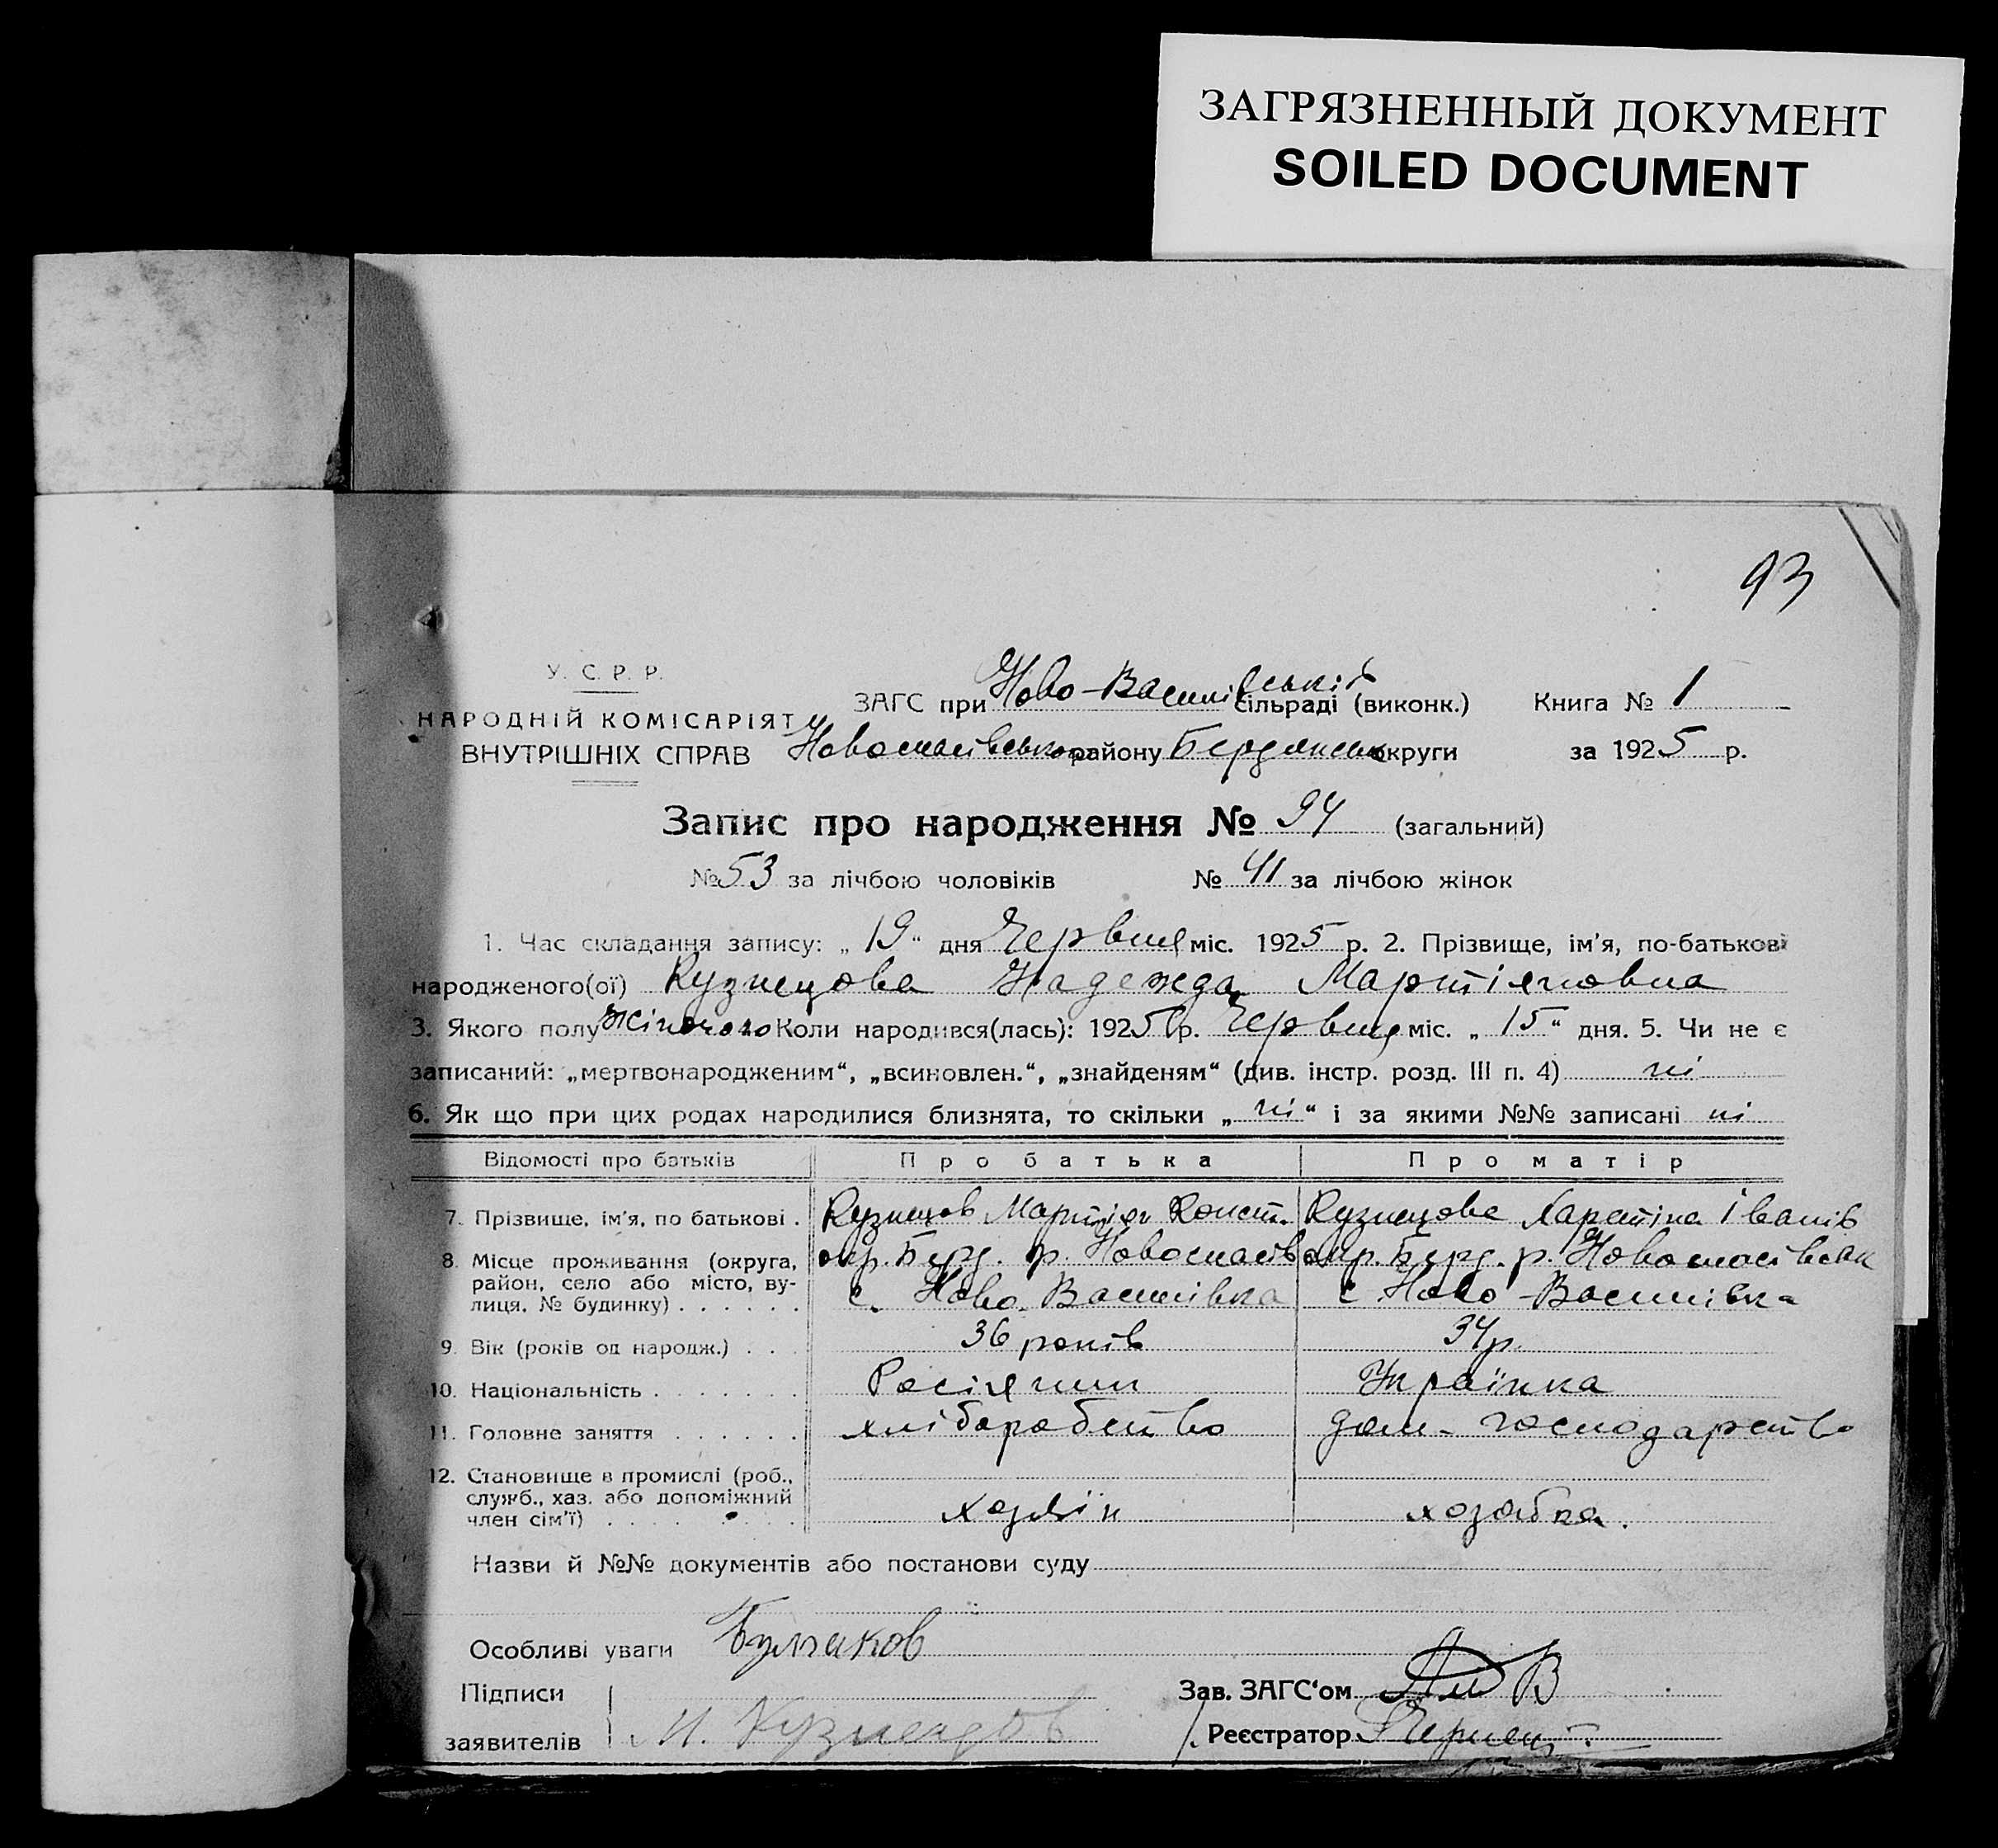 ЗАГРЯЗНЕННЫЙ ДОКУМЕНТ
SOILED DOCUMENT
93
У. С. Р. Р.
НАРОДНІЙ КОМІСАРІЯТ
ВНУТРІШНІХ СПРАВ
ЗАГС при Ново-Василівській сільраді (виконк.) Книга № 1
Новоспасівського району Бердянської округи за 1925 р.
Запис про народження № 94 (загальний)
№ 53 за лічбою чоловіків № 41 за лічбою жінок
1. Час складання запису: „ 19 “ дня Червня міс. 1925 р. 2. Прізвище, ім'я, по-батькові
народженого(ої) Кузнецова Надежда Мартіяновна
3. Якого полу жіночого Коли народився(лась): 1925 р. Червня міс. „ 15 “ дня. 5. Чи не є
записаний: „мертвонародженим“, „всиновлен.“, „знайденям“ (див. інстр. розд. III п. 4) ні
6. Як що при цих родах народилися близнята, то скільки „ ні “ і за якими №№ записані ні
Відомості про батьків Про батька Про матір
7. Прізвище, ім'я, по батькові . Кузнецов Мартіян Конст. Кузнецова Іванів
8. Місце проживання (округа, окр. Берд. р. Новоспасів окр. Берд. р. Новоспасівськ
район, село або місто, ву-
лиця, № будинку) . . . . . . с. Ново-Василівка с Ново-Василівка
9. Вік (років од народж.) . . . 36 років 34 р.
10. Національність . . . . . . . Росіянин Українка
11. Головне заняття . . . . . . хліборобство дом-господарство
12. Становище в промислі (роб.,
служб., хаз. або допоміжний
член сім'ї) . . . . . . . . . хозяїн хозяйка.
Назви й №№ документів або постанови суду
Особливі уваги Булгаков
Підписи
заявителів И. Кузнецов
Зав. ЗАГС'ом
Реєстратор